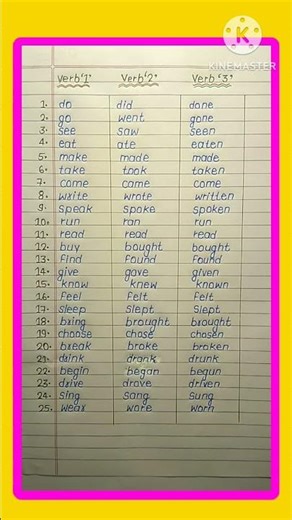 KINEMASTER
Verb'1' Verb'2' Verb'3'
1. do did done
2. go went gone
3. see saw seen
4. eat ate eaten
5. make made made
6. take took taken
7. come came come
8. write wrote written
9. speak spoke spoken
10. run ran run
11. read read read
12. buy bought bought
13. find found found
14. give gave given
15. know knew known
16. feel felt felt
17. sleep slept slept
18. bring brought brought
19. choose chose chosen
20. break broke broken
21. drink drank drunk
22. begin began begun
23. drive drove driven
24. sing sang sung
25. wear wore worn